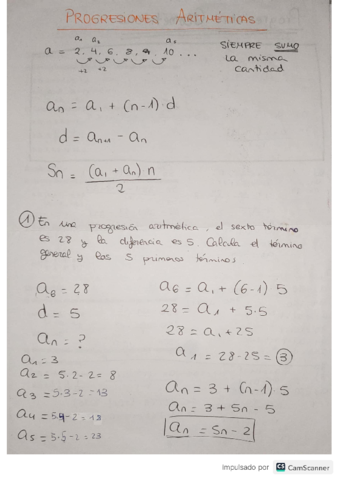 PROGRESIONES ARITMÉTICAS
a₁ a₂
a = 2, 4, 6, 8, 9, 10 ...
+2 +2
SIEMPRE SUMO
la misma
cantidad
an = a₁ + (n-1)·d
d = an+1 - an
Sn = (a₁ + an) n / 2
① En una progresión aritmética, el sexto término
es 28 y la diferencia es 5. Calcula el término
general y los 5 primeros términos
a6 = 28
d = 5
an = ?
a1 = 3
a2 = 5·2-2 = 8
a3 = 5·3-2 = 13
a4 = 5·4-2 = 18
a5 = 5·5-2 = 23
a6 = a₁ + (6-1) 5
28 = a₁ + 5·5
28 = a₁ + 25
a1 = 28-25 = 3
an = 3 + (n-1) 5
an = 3 + 5n - 5
an = 5n - 2
Impulsado por CS CamScanner